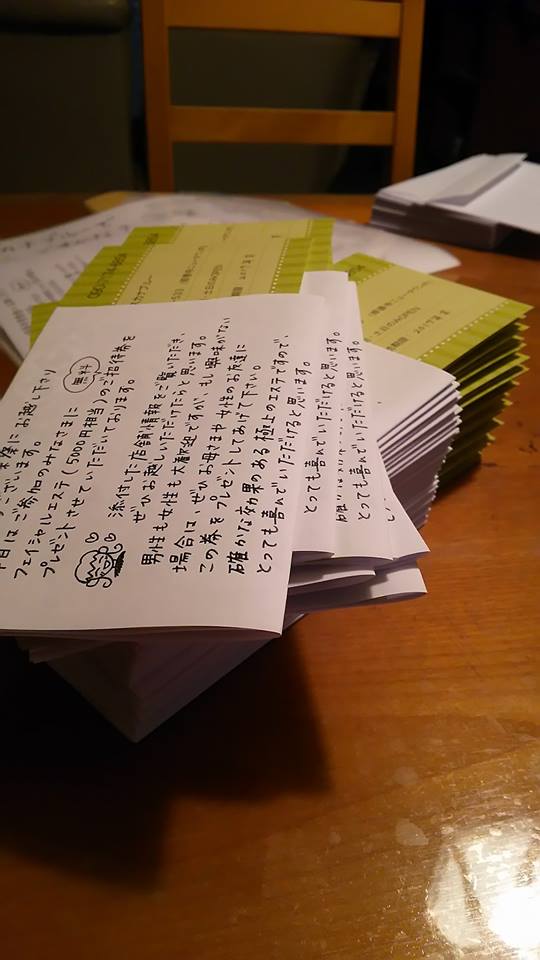 祭にお越し下さり
ございます。
日はご参加のみなさまに
無料
フェイシャルエステ(5000円相当)のご招待券を
プレゼントさせていただいております。
添付した店舗情報をご覧いただき、
ぜひお越しいただけたらと思います。
男性も女性も大歓迎ですが、もし興味がない
場合は、ぜひお母さまや女性のお友達に
この券をプレゼントしてあげて下さい。
確かな効果のある極上のエステですので、
とっても喜んでいただけると思います。
とっても喜んでいただけると思います。
とっても喜んでいただけると思います。
土日のみOPEN